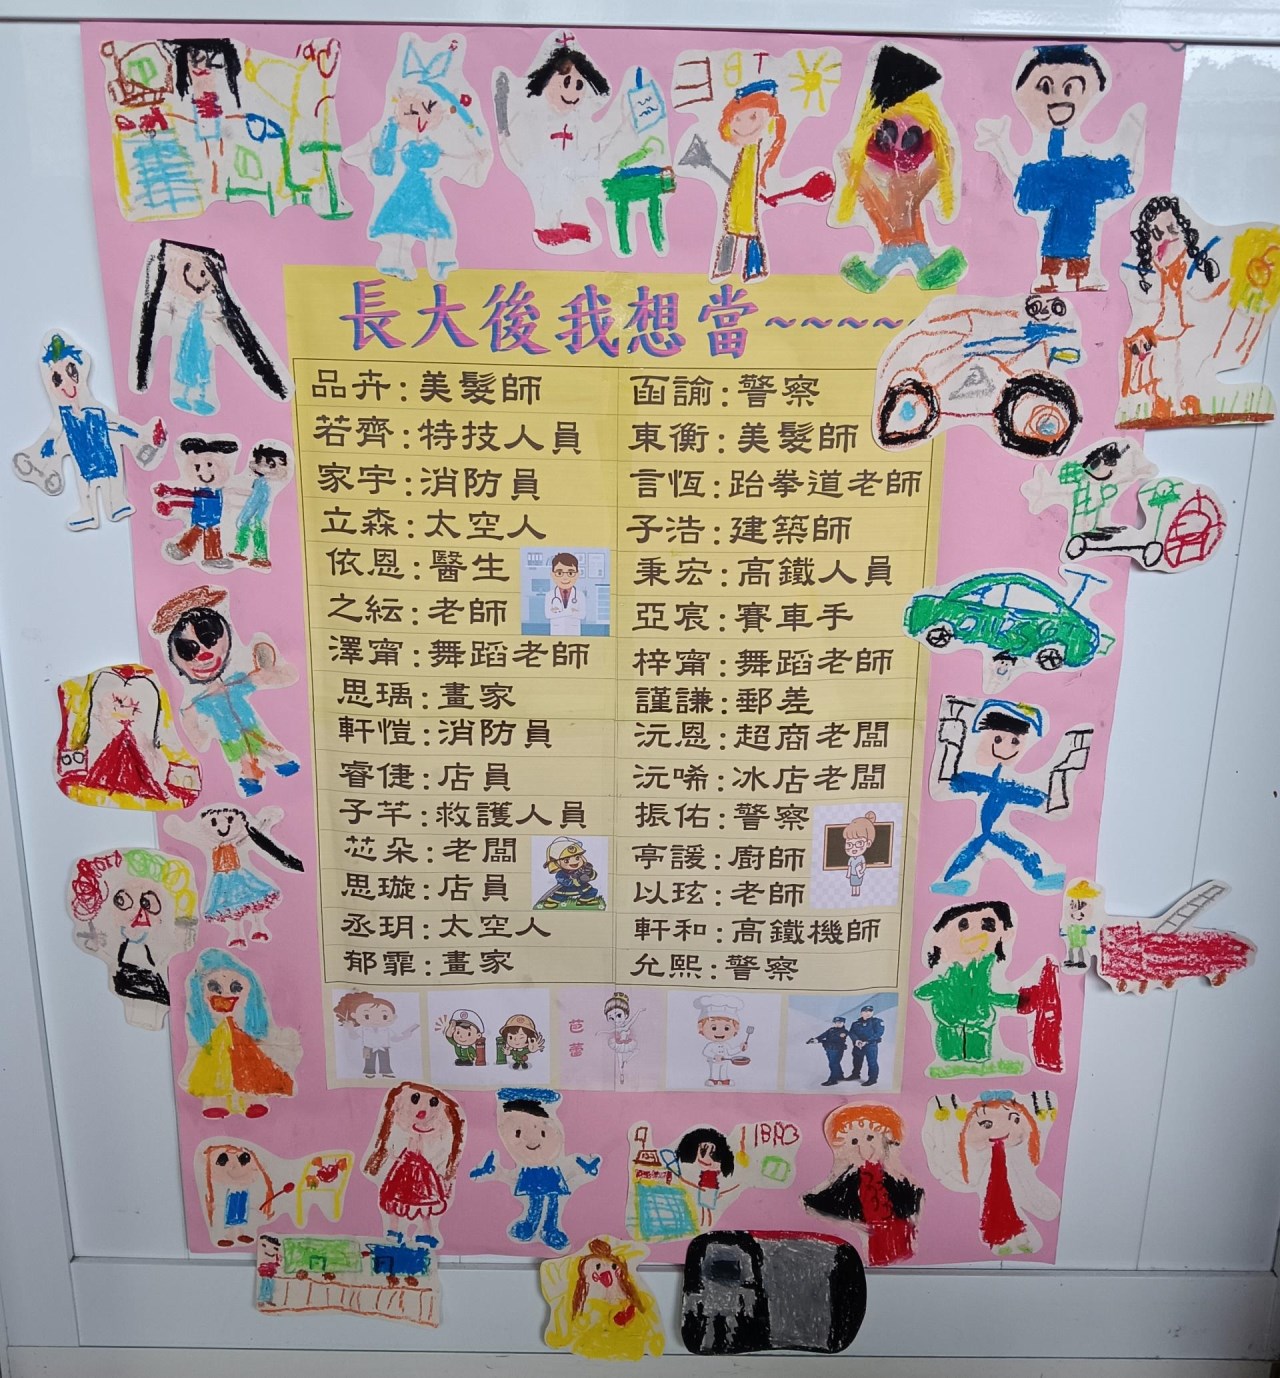 長大後我想當~~~~~
品卉:美髮師
若齊:特技人員
家宇:消防員
立森:太空人
依恩:醫生
之紜:老師
澤甯:舞蹈老師
思瑀:畫家
軒愷:消防員
睿倢:店員
子芊:救護人員
芯朵:老闆
思璇:店員
丞玥:太空人
郁霏:畫家
函諭:警察
東衡:美髮師
言恆:跆拳道老師
子浩:建築師
秉宏:高鐵人員
亞宸:賽車手
梓甯:舞蹈老師
謹謙:郵差
沅恩:超商老闆
沅唏:冰店老闆
振佑:警察
亭諼:廚師
以玹:老師
軒和:高鐵機師
允熙:警察
芭蕾